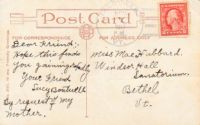 Post Card
FOR CORRESPONDENCE
FOR ADDRESS ONLY
Dear Friend:
Hope this finds
you gaining.
Your Friend
Lucy
By request of my
mother.
Miss Mae Hubbard.
Windsor Hall
Sanatorium.
Bethel
Vt.